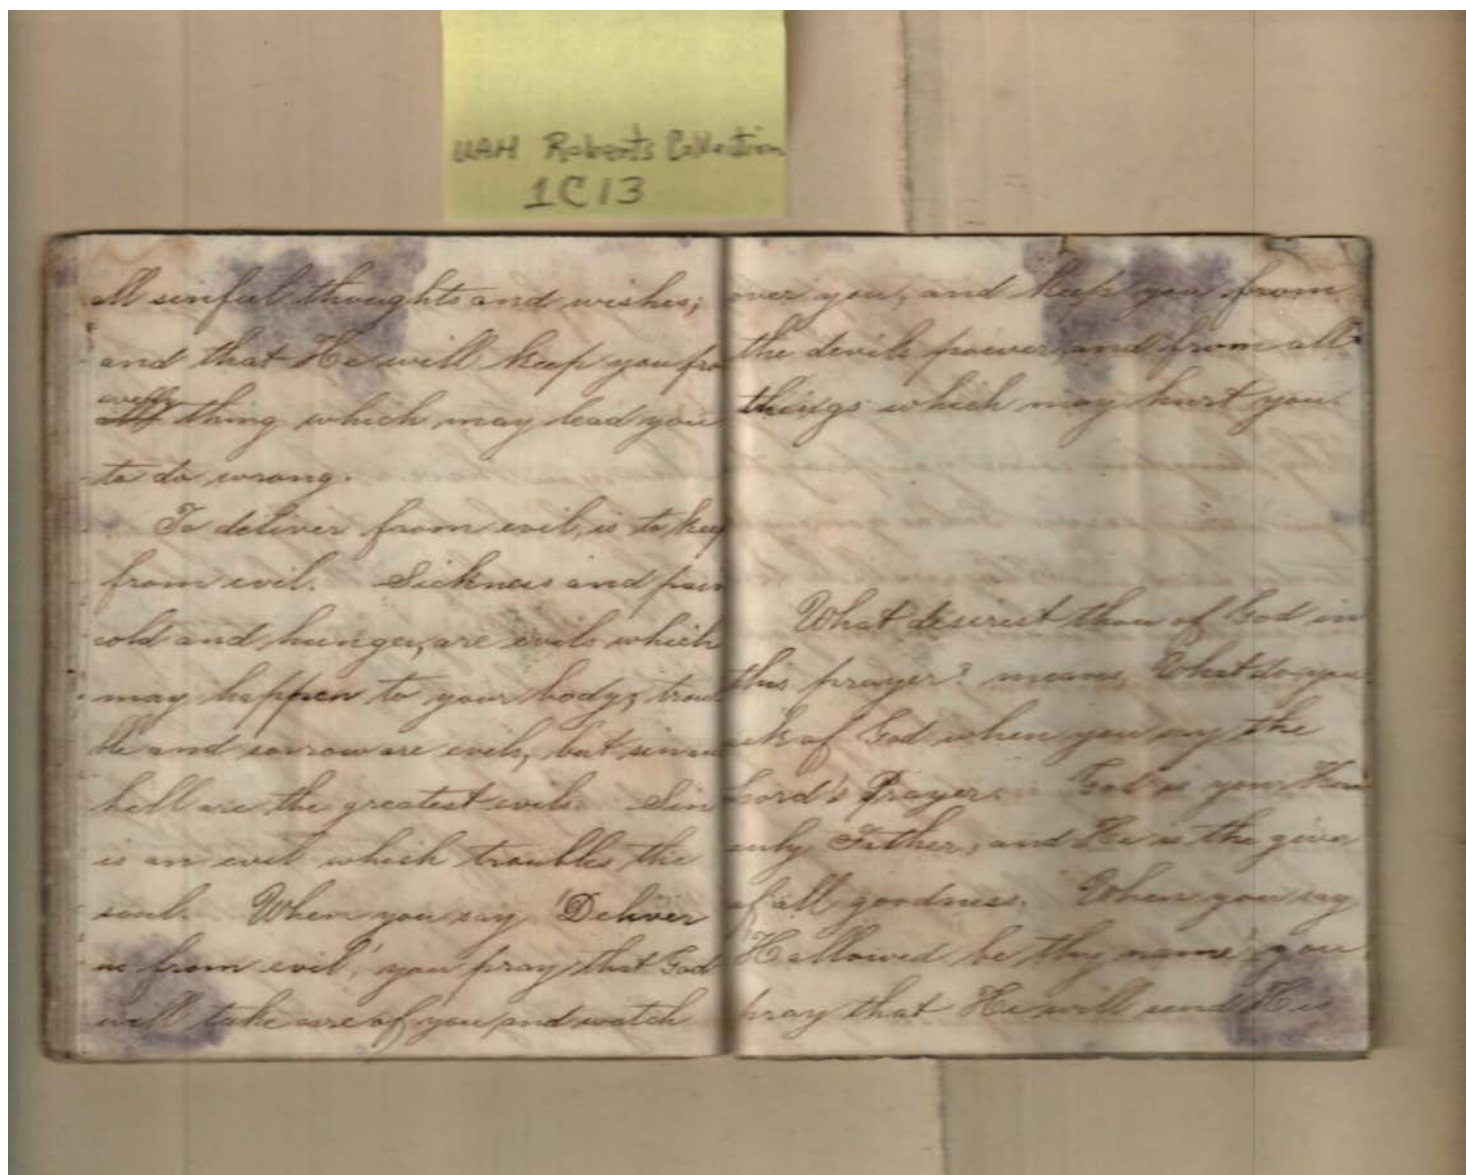 UAH Roberts Collection
1C13
all sinful thoughts and wishes;
and that He will keep you fro
every thing which may lead you
to do wrong.
To deliver from evil, is to keep
from evil. Sickness and pain
cold and hunger, are evils which
may happen to your body; trou
ble and sorrow are evils, but sin an
hell are the greatest evils. Sin
is an evil which troubles the
soul. When you say 'Deliver
us from evil', you pray that God
will take care of you and watch
over you, and keep you from
the devils power, and from all
things which may hurt you.
What desirest thou of God in
this prayer? means, What do you
ask of God when you say the
Lord's Prayer. God is your Heav
enly Father, and He is the giver
of all goodness. When you say
'Hallowed be thy name' you
pray that He will send His